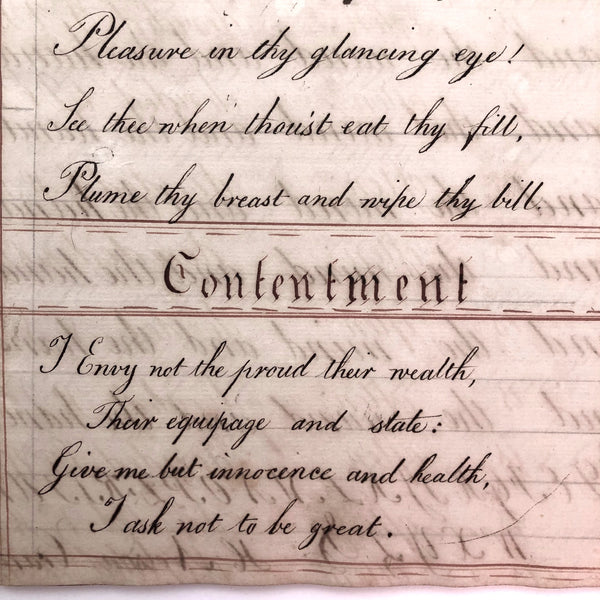 Pleasure in thy glancing eye!
See thee when thou'st eat thy fill,
Plume thy breast and wipe thy bill.
Contentment
I Envy not the proud their wealth,
Their equipage and state:
Give me but innocence and health,
I ask not to be great.